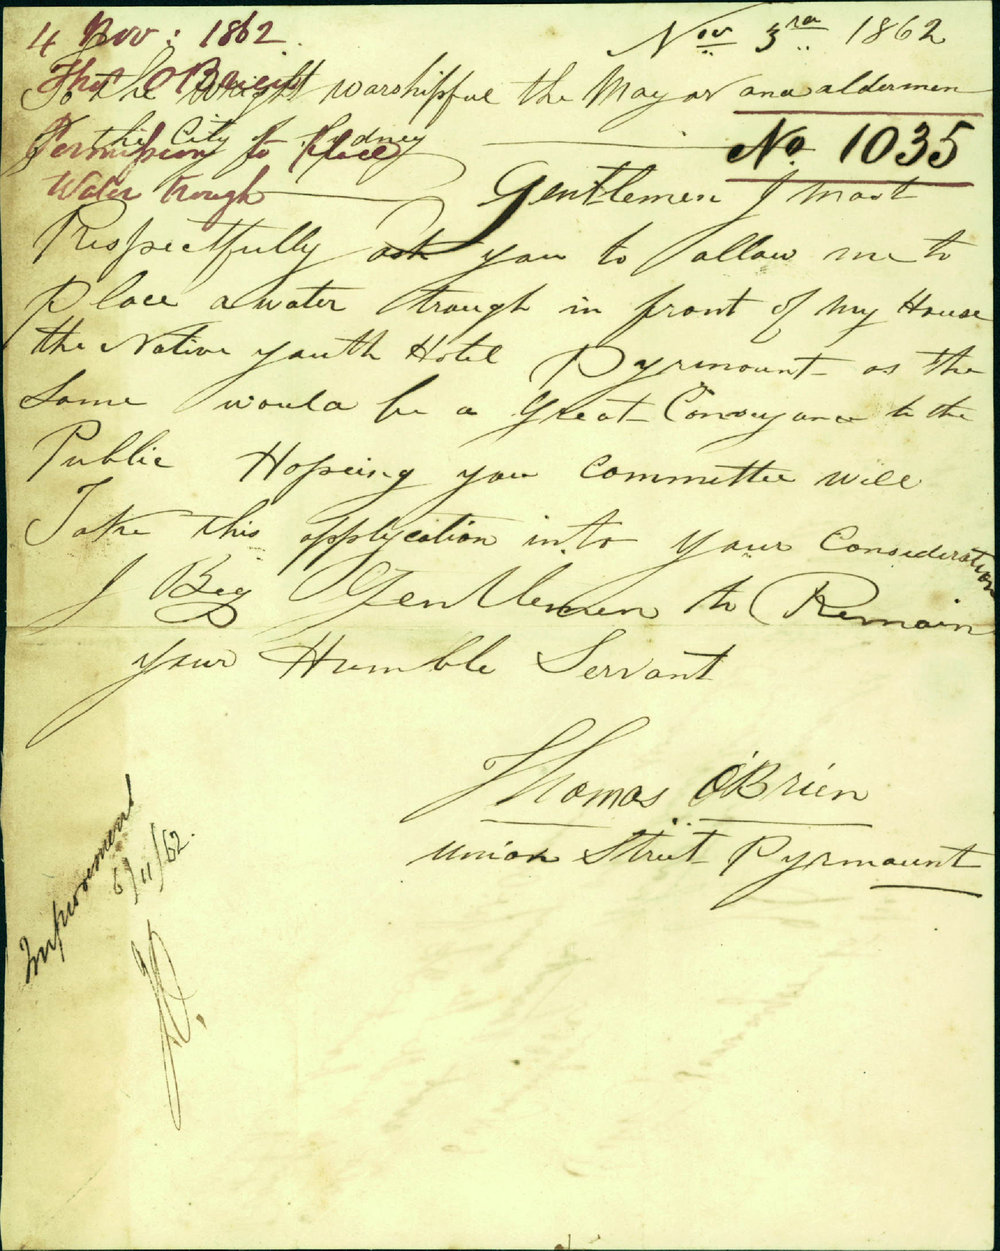 4 Nov: 1862.
Nov 3rd 1862
Thos O'Brien
To the Wright warshipful the Mayor and aldermen
of the City of Sydney
No. 1035
Permission to place
Water trough
Gentlemen I most
Respectfully ask you to allow me to
Place a water trough in front of my House
the Native youth Hotel Pyrmount as the
Same would be a Great Conveyance to the
Public Hopeing you Committee will
Take this application into your Consideration
I Beg Gentlemen to Remain
your Humble Servant
Thomas O'Brien
union Street Pyrmount
Improvement
6/11/62.